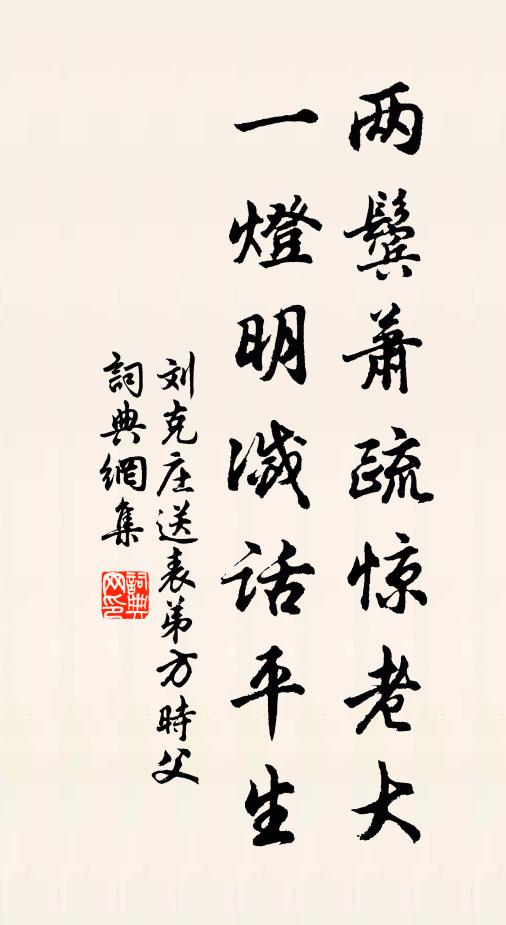 两鬓萧疏惊老大
一燈明滅话平生
刘克庄送表弟方時父
詞典網集
詞典网印